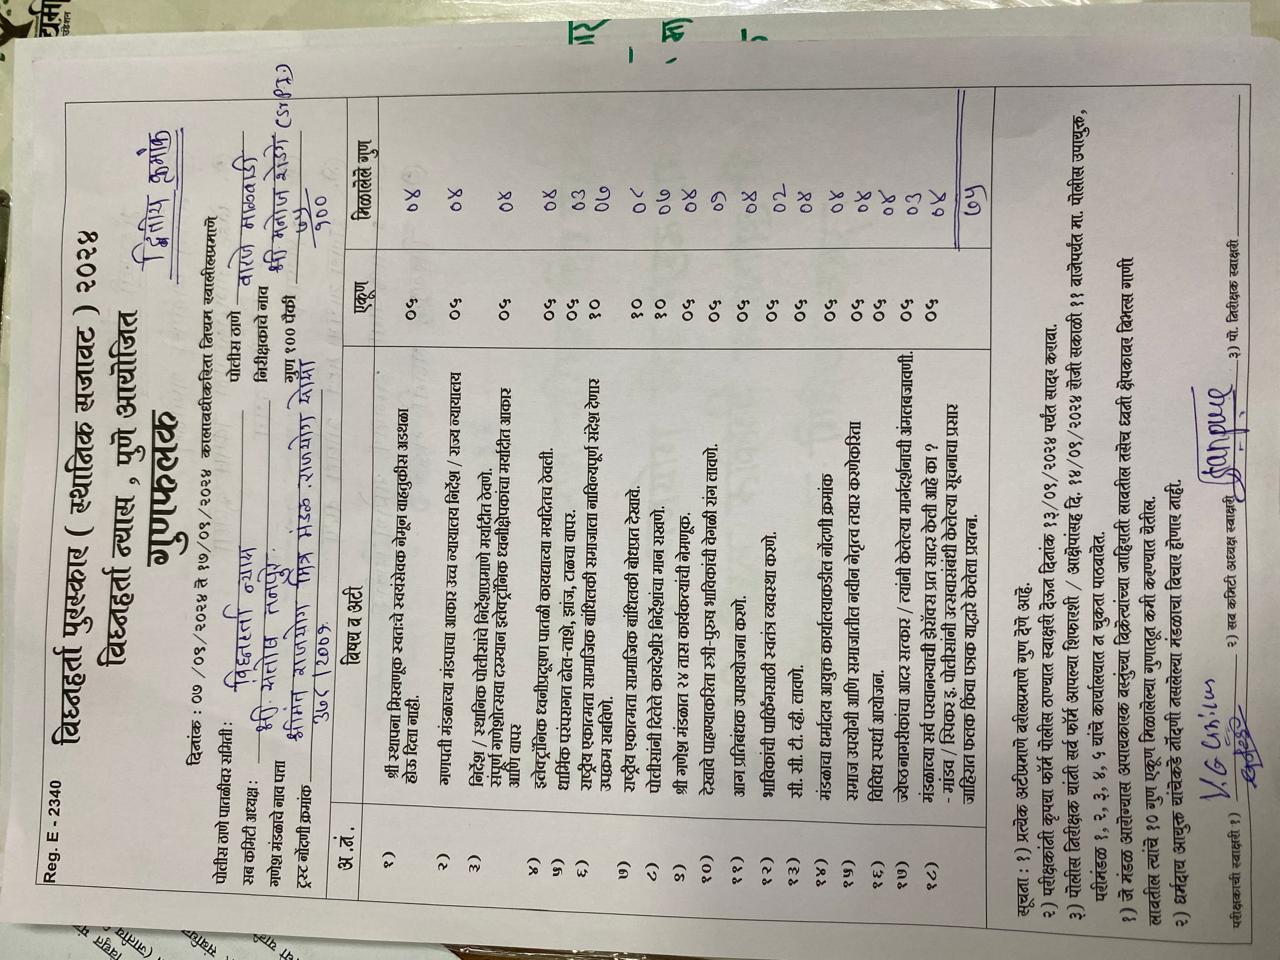 Reg. E - 2340
विघ्नहर्ता पुरस्कार ( स्थानिक सजावट ) २०२४
विघ्नहर्ता न्यास , पुणे आयोजित
गुणफलक
द्वितीय क्रमांक
दिनांक : ०७ /०९/२०२४ ते १७/०९/२०२४ कालावधीकरिता नियम खालीलप्रमाणे
पोलीस ठाणे पातळीवर समिती : विघ्नहर्ता न्यास पोलीस ठाणे वारजे माळवाडी
सब कमिटी अध्यक्ष: श्री. संतोष तनपुरे निरीक्षकाचे नाव श्री मनोज शेडगे (Sr PI.)
गणेश मंडळाचे नाव पत्ता श्रीमंत राजयोग मित्र मंडळ . राजयोग सोसा गुण १०० पैकी ७५/१००
ट्रस्ट नोंदणी क्रमांक ३७८/२००१
अ.नं. विषय व अटी एकूण मिळालेले गुण
१) श्री स्थापना मिरवणूक स्वतःचे स्वयंसेवक नेमून वाहतुकीस अडथळा
होऊ दिला नाही. ०५ ०४
२) गणपती मंडळाच्या मंडपाचा आकार उच्च न्यायालय निर्देश / राज्य न्यायालय ०५ ०४
३) निर्देश / स्थानिक पोलीसांचे निर्देशाप्रमाणे मर्यादीत ठेवणे.
संपूर्ण गणेशोत्सवा दरम्यान इलेक्ट्रॉनिक ध्वनीक्षेपकांचा मर्यादीत आकार
आणि वापर ०५ ०४
४) इलेक्ट्रॉनिक ध्वनीप्रदूषण पातळी कायद्याच्या मर्यादितच ठेवली. ०५ ०४
५) धार्मिक परंपरागत ढोल-ताशे, झांज, टाळचा वापर. ०५ ०३
६) राष्ट्रीय एकात्मता सामाजिक बांधिलकी समाजाला नाविन्यपूर्ण संदेश देणार
उपक्रम राबविणे. १० ०७
७) राष्ट्रीय एकात्मता सामाजिक बांधिलकी बोधप्रत देखावे. १० ०८
८) पोलीसांनी दिलेले कायदेशीर निर्देशांचा मान राखणे. १० ०७
९) श्री गणेश मंडळात २४ तास कार्यकर्त्यांची नेमणूक. ०५ ०४
१०) देखावे पाहण्याकरिता स्त्री-पुरुष भाविकांची वेगळी रांग लावणे. ०५ ०१
११) आग प्रतिबंधक उपाययोजना करणे. ०५ ०४
१२) भाविकांची पार्किंगसाठी स्वतंत्र व्यवस्था करणे. ०५ ०२
१३) सी. सी. टी. व्ही. लावणे. ०५ ०४
१४) मंडळाचा धर्मादाय आयुक्त कार्यालयाकडील नोंदणी क्रमांक ०५ ०४
१५) समाज उपयोगी आणि समाजातील नवीन नेतृत्व तयार करणेकरिता ०५ ०४
१६) विविध स्पर्धा आयोजन. ०५ ०४
१७) ज्येष्ठ नागरीकांचा आदर सत्कार / त्यांनी केलेल्या मार्गदर्शनाची अंमलबजावणी. ०५ ०३
१८) मंडळाच्या सर्व परवानग्याची झेरॉक्स प्रत सादर केली आहे का ? ०५ ०४
- मांडव / स्पिकर इ. पोलीसांनी उत्सवासंबंधी केलेल्या सूचनाचा प्रसार
जाहिरात फलक किंवा पत्रक याद्वारे केलेला प्रयत्न.
७५
सूचना : १) प्रत्येक अटीप्रमाणे वरीलप्रमाणे गुण देणे आहे.
२) परीक्षकांनी कृपया फॉर्म पोलीस ठाण्यात स्वाक्षरी देऊन दिनांक १३/०९/२०२४ पर्यंत सादर करावा.
३) पोलीस निरीक्षक यांनी सर्व फॉर्म आपल्या शिफारशी / आक्षेपांसह दि. १४/०९/२०२४ रोजी सकाळी ११ वाजेपर्यंत मा. पोलीस उपायुक्त,
परीमंडळ १, २, ३, ४, ५ यांचे कार्यालयात न चुकता पाठवावेत.
१) जे मंडळ आरोग्यास अपायकारक वस्तुंच्या विक्रेत्यांच्या जाहिराती लावतील तसेच ध्वनी क्षेपकावर बिभत्स गाणी
लावतील त्यांचे १० गुण एकूण मिळालेल्या गुणातून कमी करण्यात येतील.
२) धर्मदाय आयुक्त यांचेकडे नोंदणी नसलेल्या मंडळाचा विचार होणार नाही.
परीक्षकाची स्वाक्षरी १) २) सब कमिटी अध्यक्ष स्वाक्षरी ३) पो. निरीक्षक स्वाक्षरी